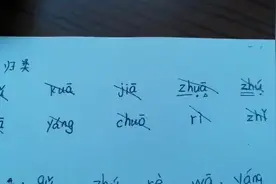 归类
kuā jiā zhuā zhú
yáng chuā rì zhǐ
zhú rè wā yáng